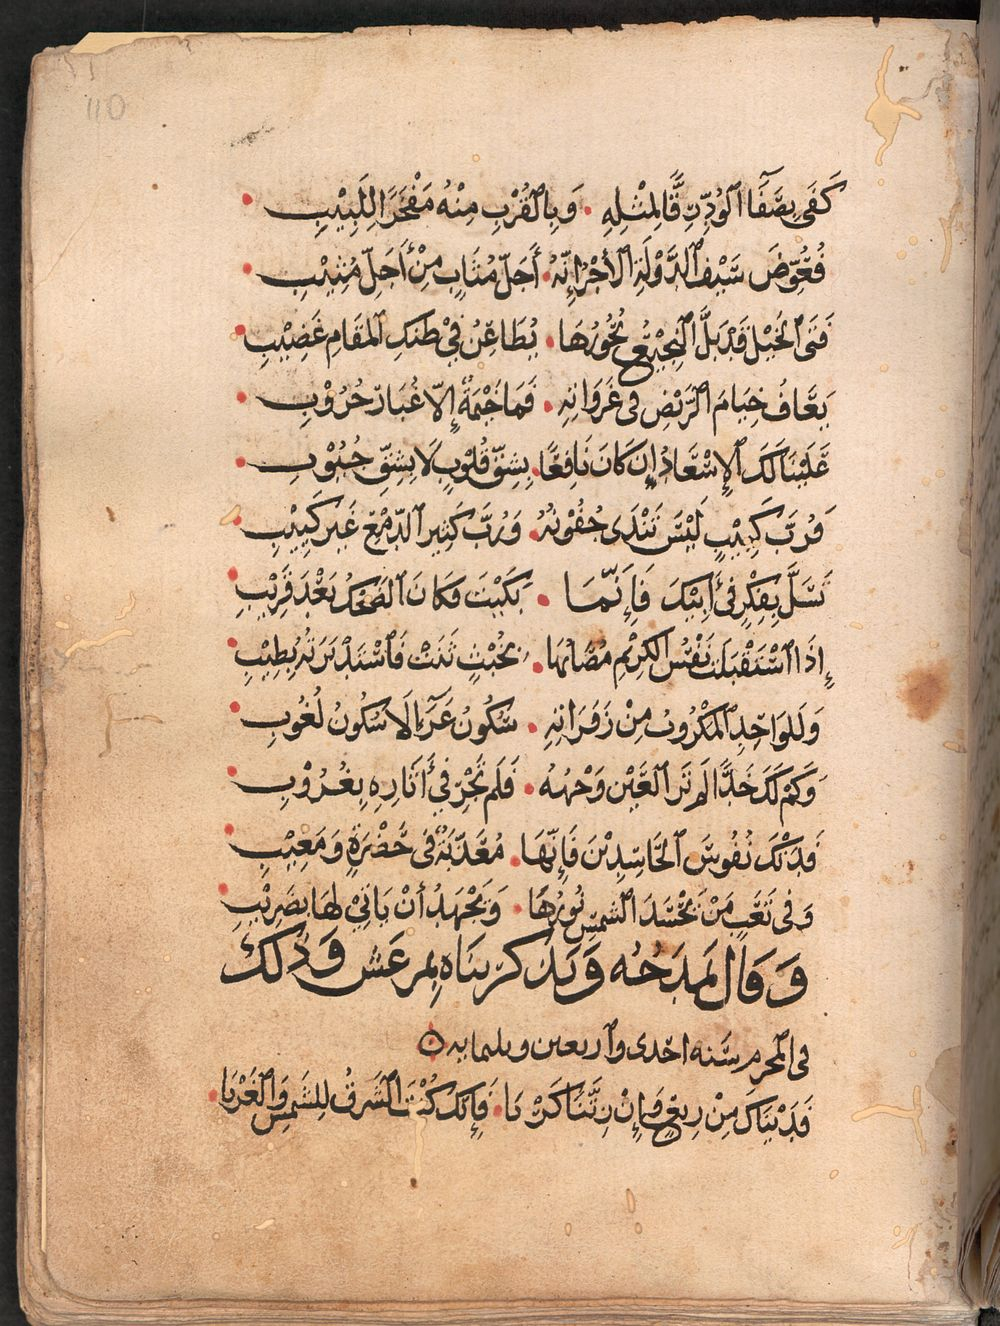 110
كَفَى بِصَفَاءِ الْوُدِّ رِقًّا لِمِثْلِهِ . وَبِالْقُرْبِ مِنْهُ مَفْخَرًا لِلَبِيْبِ
فَعُوِّضَ سَيْفُ الدَّوْلَةِ الْأَجْرَ إِنَّهُ . أَجَلُّ مُثَابٍ مِنْ أَجَلِّ مُثِيْبِ
فَتَى الْخَيْلِ قَدْ بَلَّ النَّجِيْعُ نُحُوْرَهَا . يُطَاعِنُ فِيْ ضَنْكِ الْمَقَامِ عَصِيْبِ
يَعَافُ خِيَامَ الرَّيْطِ فِى غَزَوَاتِهِ . فَمَا خَيْمُهُ إِلَّا غُبَارُ حُرُوْبِ
عَلَيْنَا لَكَ الْإِسْعَادُ إِنْ كَانَ نَافِعًا . بِشَقِّ قُلُوْبٍ لَا بِشَقِّ جُيُوْبِ
فَرُبَّ كَئِيْبٍ لَيْسَ تَنْدَى جُفُوْنُهُ . وَرُبَّ كَثِيْرِ الدَّمْعِ غَيْرِ كَئِيْبِ
تَسَلَّ بِفِكْرٍ فِى أَبِيْكَ فَإِنَّمَا . بَكَيْتَ فَكَانَ الضِّحْكُ بَعْدَ قَرِيْبِ
إِذَا اسْتَقْبَلَتْ نَفْسُ الْكَرِيْمِ مُصَابَهَا . بِخُبْثٍ ثَنَتْ فَاسْتَدْبَرَتْهُ بِطِيْبِ
وَلِلْوَاجِدِ الْمَكْرُوْبِ مِنْ زَفَرَاتِهِ . سُكُوْنُ عَزَاءٍ أَوْ سُكُوْنُ لُغُوْبِ
وَكَمْ لَكَ جَدًّا لَمْ تَرَ الْعَيْنُ وَجْهَهُ . فَلَمْ تَجْرِ فِيْ آثَارِهِ بِغُرُوْبِ
فَدَتْكَ نُفُوْسُ الْحَاسِدِيْنَ فَإِنَّهَا . مُعَذَّبَةٌ فِى حَضْرَةٍ وَمَغِيْبِ
وَفِى تَعَبٍ مَنْ يَحْسُدُ الشَّمْسَ نُوْرَهَا . وَيَجْهَدُ أَنْ يَأْتِيْ لَهَا بِضَرِيْبِ
وَقَالَ يَمْدَحُهُ وَيَذْكُرُ بِنَاهُ بِمَرْعَشَ وَذٰلِكَ
فِى الْمُحَرَّمِ سَنَةَ احْدَى وَارْبَعِين وَثَلثمايه
فَدَيْنَاكَ مِنْ رَبْعٍ وَإِنْ زِدْتَنَا كَرْبَا . فَإِنَّكَ كُنْتَ الشَّرْقَ لِلشَّمْسِ وَالْغَرْبَا